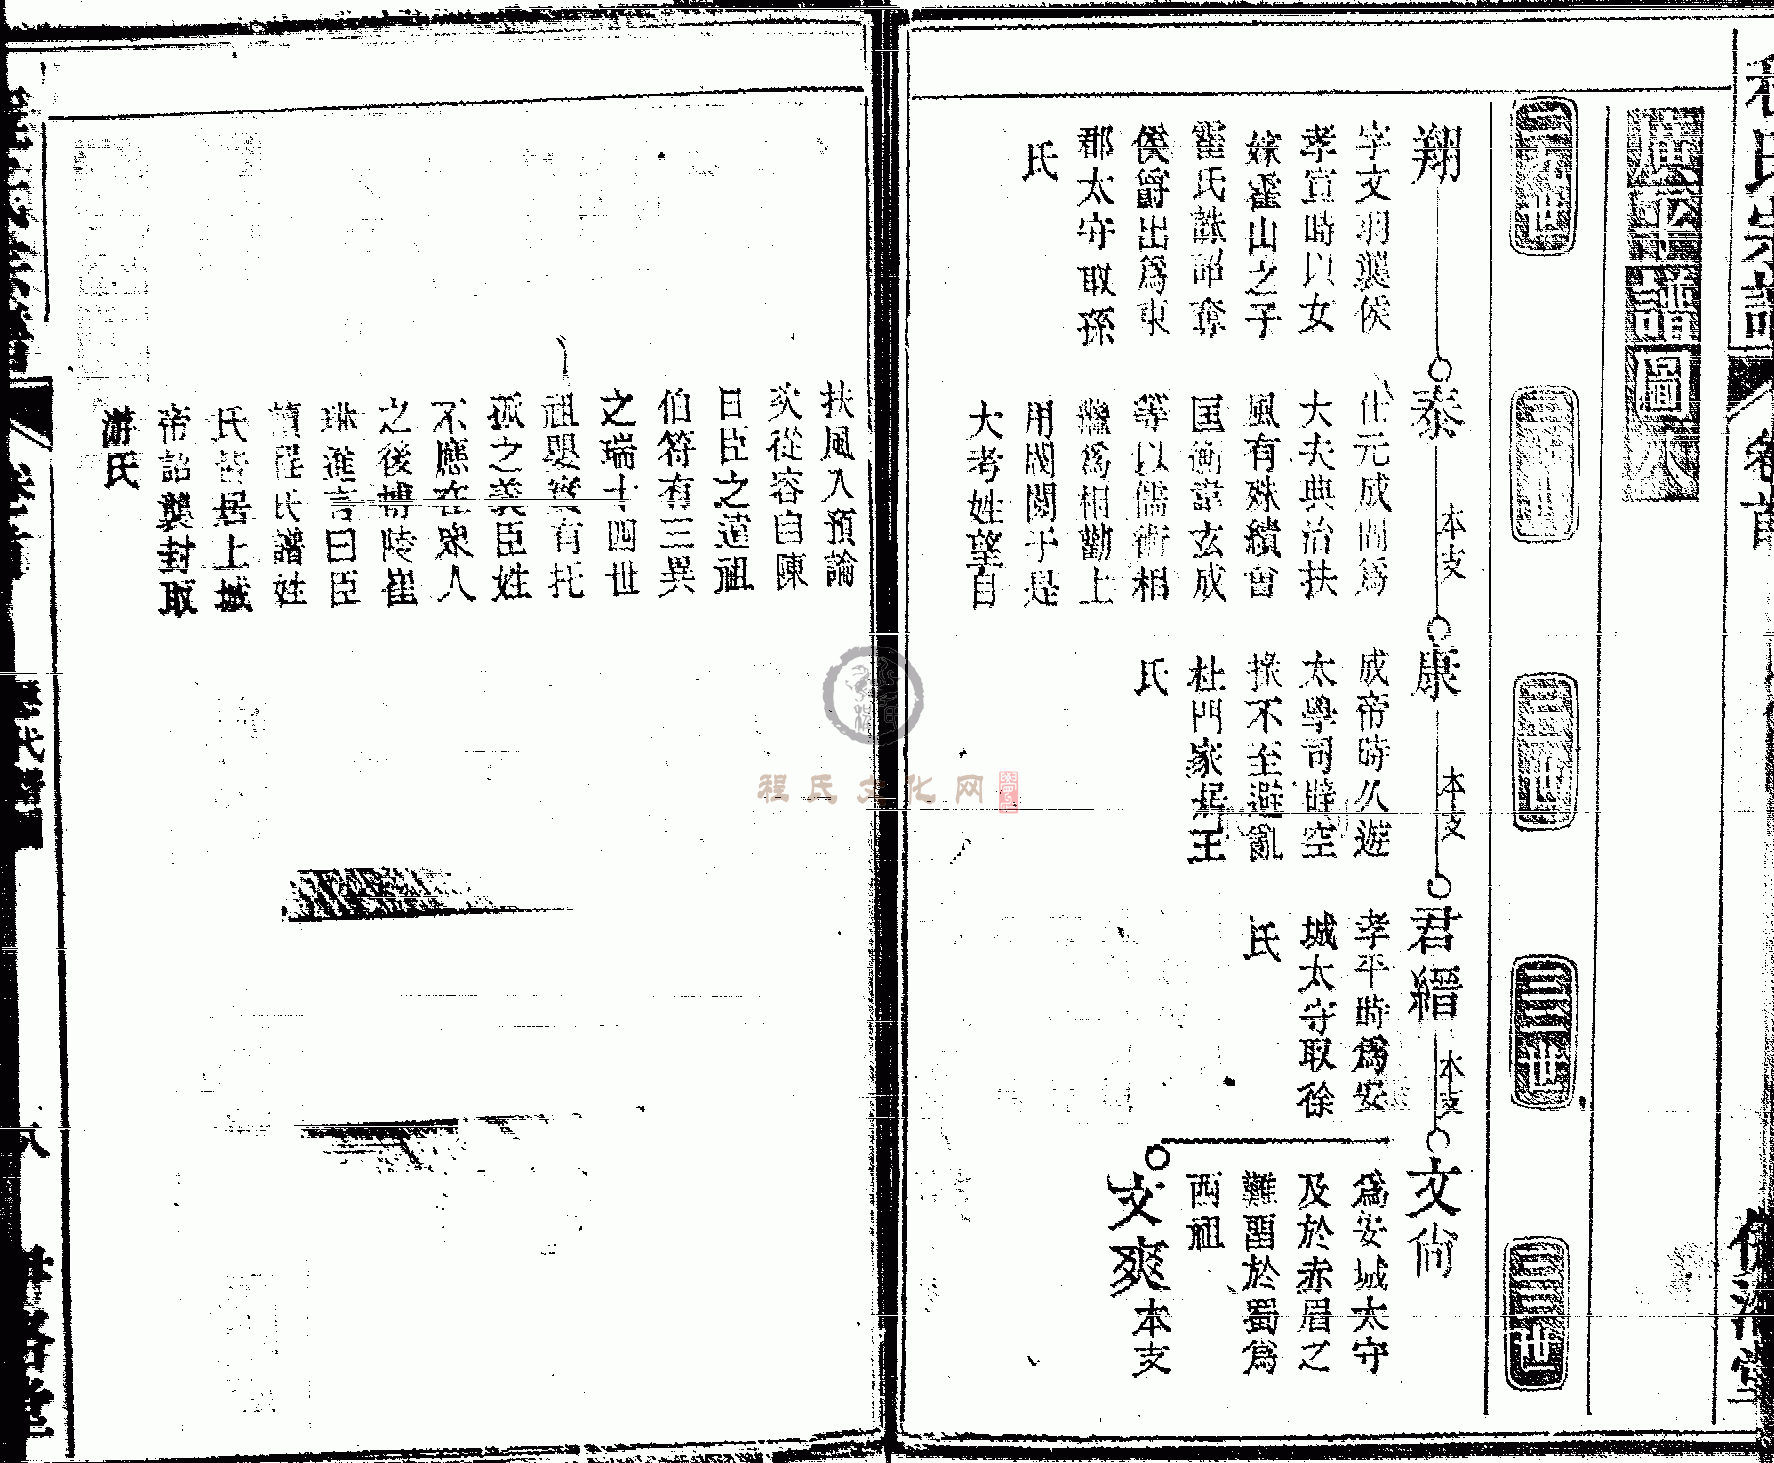 廣平譜圖八
翔
字文羽襲侯
孝宣時以女
妹霍山之子
霍氏誅詔奪
侯爵出爲東
郡太守取孫
氏
泰
本支
仕元成間爲
大夫典治扶
風有殊績曾
匡衡韋玄成
等以儒術相
繼爲相勸上
用閥閱于是
大考姓望自
扶風入預論
奕從容自陳
曰臣之遠祖
伯符有三異
之瑞十四世
祖嬰實有托
孤之義臣姓
不應在衆人
之後博陵崔
琳進言曰臣
讀程氏譜姓
氏皆居上城
帝詔襲封取
游氏
康
本支
成帝時久遊
太學司時空
掾不至避亂
杜門家居王
氏
君縉
本支
孝平時爲安
城太守取徐
氏
文尙
爲安城太守
及於赤眉之
難留於蜀爲
西祖
文爽
本支
程氏宗譜
卷首
八
伊洛堂
程氏文化网